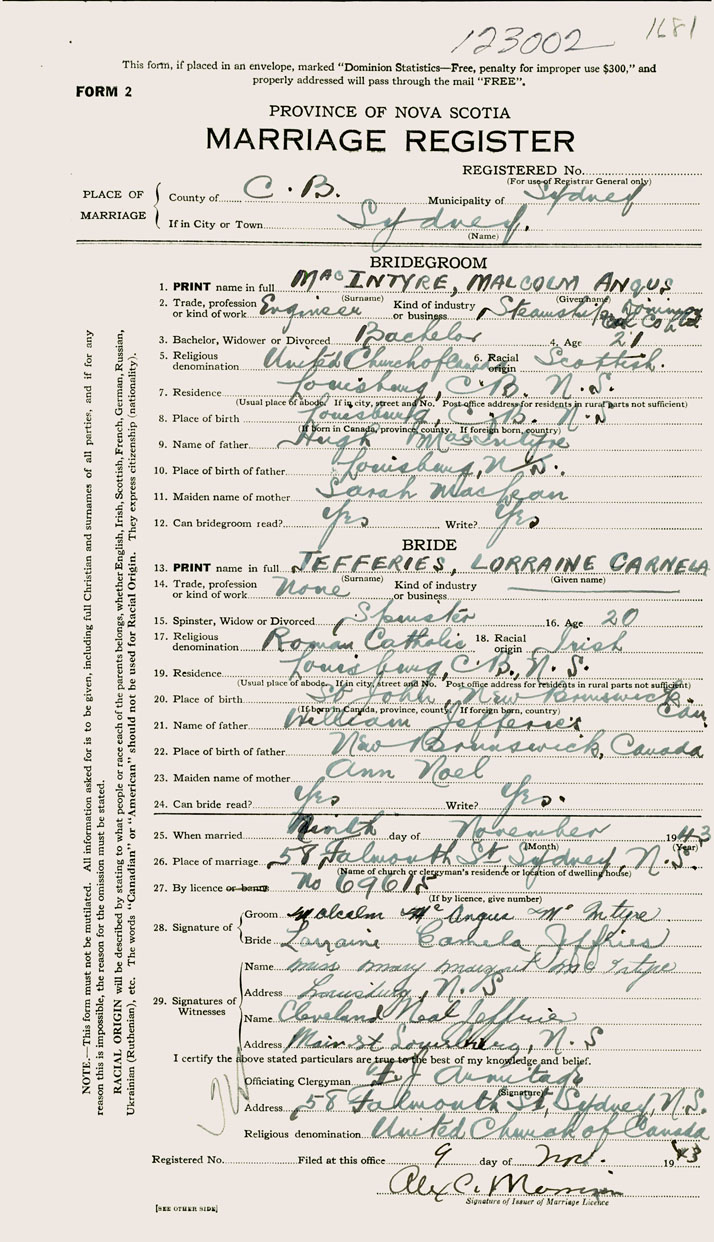 123002 1681
This form, if placed in an envelope, marked "Dominion Statistics—Free, penalty for improper use $300," and
properly addressed will pass through the mail "FREE".
FORM 2
PROVINCE OF NOVA SCOTIA
MARRIAGE REGISTER
REGISTERED No.
(For use of Registrar General only)
PLACE OF MARRIAGE
County of C. B. Municipality of Sydney
If in City or Town Sydney.
(Name)
BRIDEGROOM
1. PRINT name in full MACINTYRE, MALCOLM ANGUS
(Surname) (Given name)
2. Trade, profession or kind of work Engineer Kind of industry or business Steamship Coal Co Ltd
3. Bachelor, Widower or Divorced Bachelor 4. Age 21
5. Religious denomination United Church of Canada 6. Racial origin Scottish.
7. Residence Louisburg, C. B. N. S.
(Usual place of abode. If in city, street and No. Post office address for residents in rural parts not sufficient)
8. Place of birth Louisburg, C. B. N. S
(If born in Canada, province, county. If foreign born, country)
9. Name of father Hugh MacIntyre
10. Place of birth of father Louisburg, N. S.
11. Maiden name of mother Sarah MacLean
12. Can bridegroom read? Yes Write? Yes
BRIDE
13. PRINT name in full JEFFERIES, LORRAINE CARNELA
(Surname) (Given name)
14. Trade, profession or kind of work None Kind of industry or business
15. Spinster, Widow or Divorced Spinster 16. Age 20
17. Religious denomination Roman Catholic 18. Racial origin Irish
19. Residence Louisburg, C. B., N. S.
(Usual place of abode. If in city, street and No. Post office address for residents in rural parts not sufficient)
20. Place of birth St John, New Brunswick. Can
(If born in Canada, province, county. If foreign born, country)
21. Name of father William Jefferies
22. Place of birth of father New Brunswick, Canada
23. Maiden name of mother Ann Noel
24. Can bride read? Yes Write? Yes.
25. When married Ninth day of November 1943
(Month) (Year)
26. Place of marriage 58 Falmouth St Sydney, N. S.
(Name of church or clergyman's residence or location of dwelling house)
27. By licence or banns No 69615
(If by licence, give number)
28. Signature of
Groom Malcolm Mc Angus Mc Intyre
Bride Lorraine Camela Jeffries
29. Signatures of Witnesses
Name Miss Mary Margaret Mc Intyre
Address Louisburg, N. S
Name Cleveland Neal Jeffrie
Address Main st Louisburg, N. S
I certify the above stated particulars are true to the best of my knowledge and belief.
Officiating Clergyman Armitage
(Signature)
Address 58 Falmouth St, Sydney, N. S.
Religious denomination United Church of Canada
Registered No. Filed at this office 9 day of Nov. 1943
Alex C.
Signature of Issuer of Marriage Licence
[SEE OTHER SIDE]
NOTE.—This form must not be mutilated. All information asked for is to be given, including full Christian and surnames of all parties, and if for any
reason this is impossible, the reason for the omission must be stated.
RACIAL ORIGIN will be described by stating to what people or race each of the parents belongs, whether English, Irish, Scottish, French, German, Russian,
Ukrainian (Ruthenian), etc. The words "Canadian" or "American" should not be used for Racial Origin. They express citizenship (nationality).